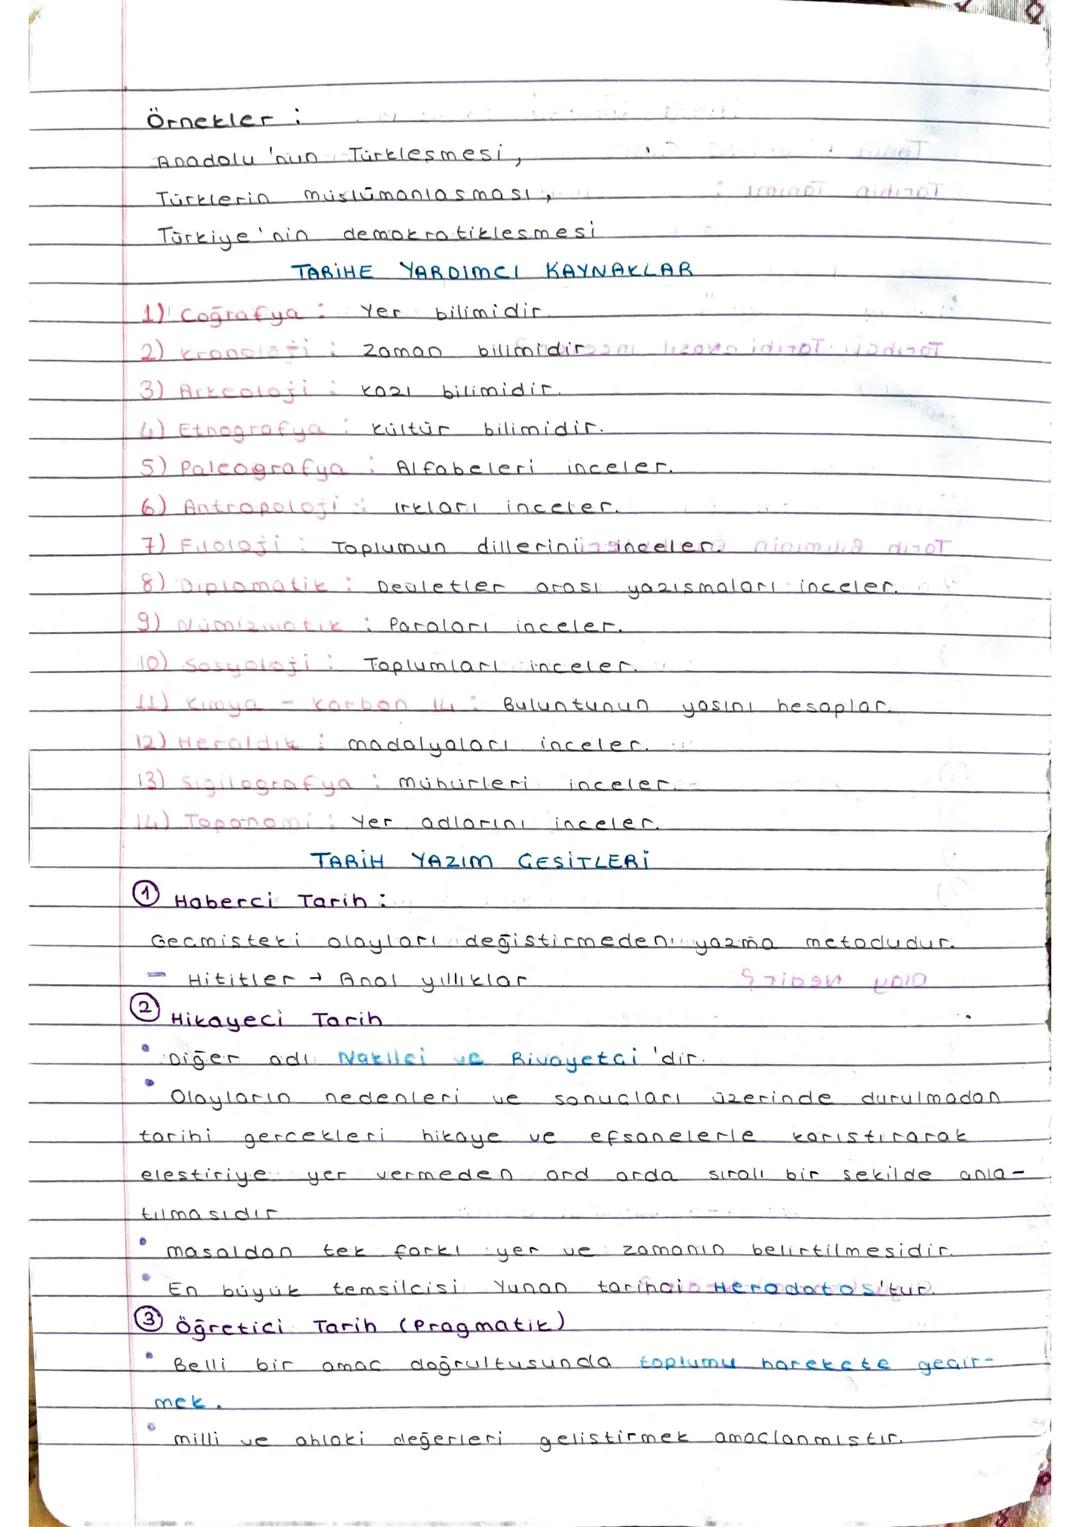 Örnekler :
Anadolu'nun Türkleşmesi,
Türklerin müslümanlaşması,
Türkiye'nin demokratikleşmesi
TARİHE YARDIMCI KAYNAKLAR
1) Coğrafya : Yer bilimidir.
2) Kronoloji : Zaman bilimidir
3) Arkeoloji : Kazı bilimidir.
4) Etnografya : Kültür bilimidir.
5) Paleografya : Alfabeleri inceler.
6) Antropoloji : Irkları inceler.
7) Filoloji : Toplumun dillerini inceler.
8) Diplomatik : Devletler arası yazısmaları inceler.
9) Nümizmatik : Paraları inceler.
10) Sosyoloji : Toplumları inceler.
11) Kimya - Karbon 14 : Buluntunun yasını hesaplar.
12) Heraldik : madalyaları inceler.
13) Sigilografya : mühürleri inceler.
14) Toponomi : Yer adlarını inceler.
TARİH YAZIM CESİTLERİ
① Haberci Tarih :
Gecmisteki olayları değistirmeden yazma metodudur.
- Hititler → Anal yıllıklar
② Hikayeci Tarih
• Diğer adı Nakilci ve Rivayetci 'dir.
• Olayların nedenleri ve sonucları üzerinde durulmadan
tarihi gercekleri hikaye ve efsanelerle karıstırarak
elestiriye yer vermeden ard arda sıralı bir sekilde anla-
tılmasıdır
• masaldan tek farkı yer ve zamanın belirtilmesidir.
• En büyük temsilcisi Yunan tarihci Herodatos'tur.
③ Öğretici Tarih (Pragmatik)
• Belli bir amac doğrultusunda toplumu harekete gecir-
mek.
• milli ve ahlaki değerleri gelistirmek amaclanmıstır.